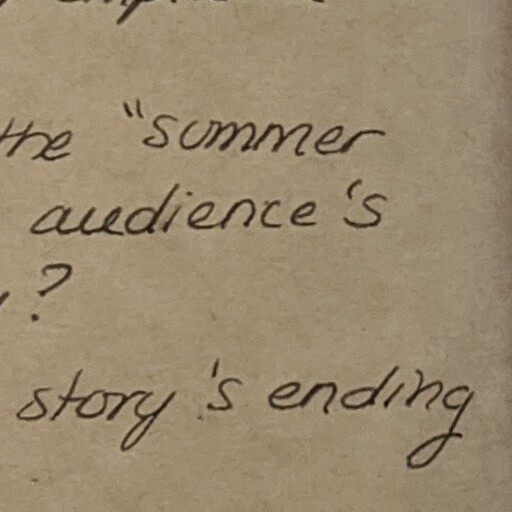 the "summer
audience's
?
story's ending